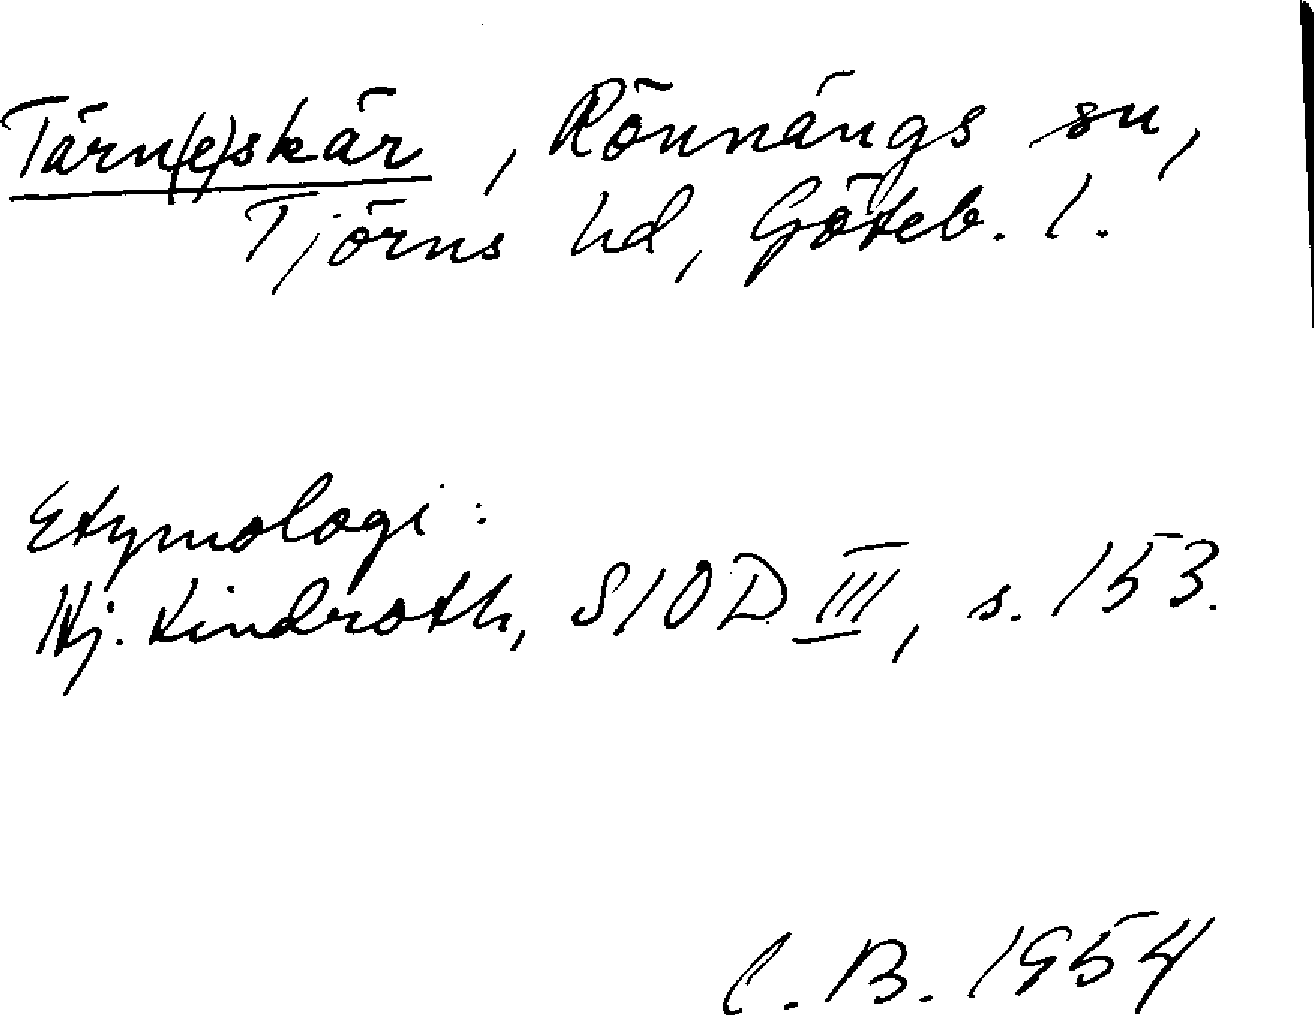 Tärn(e)skär, Rönnängs sn,
Tjörns hd, Göteb. l.
Etymologi:
Hj. Lindroth, SIOD III, s. 153.
C. B. 1954